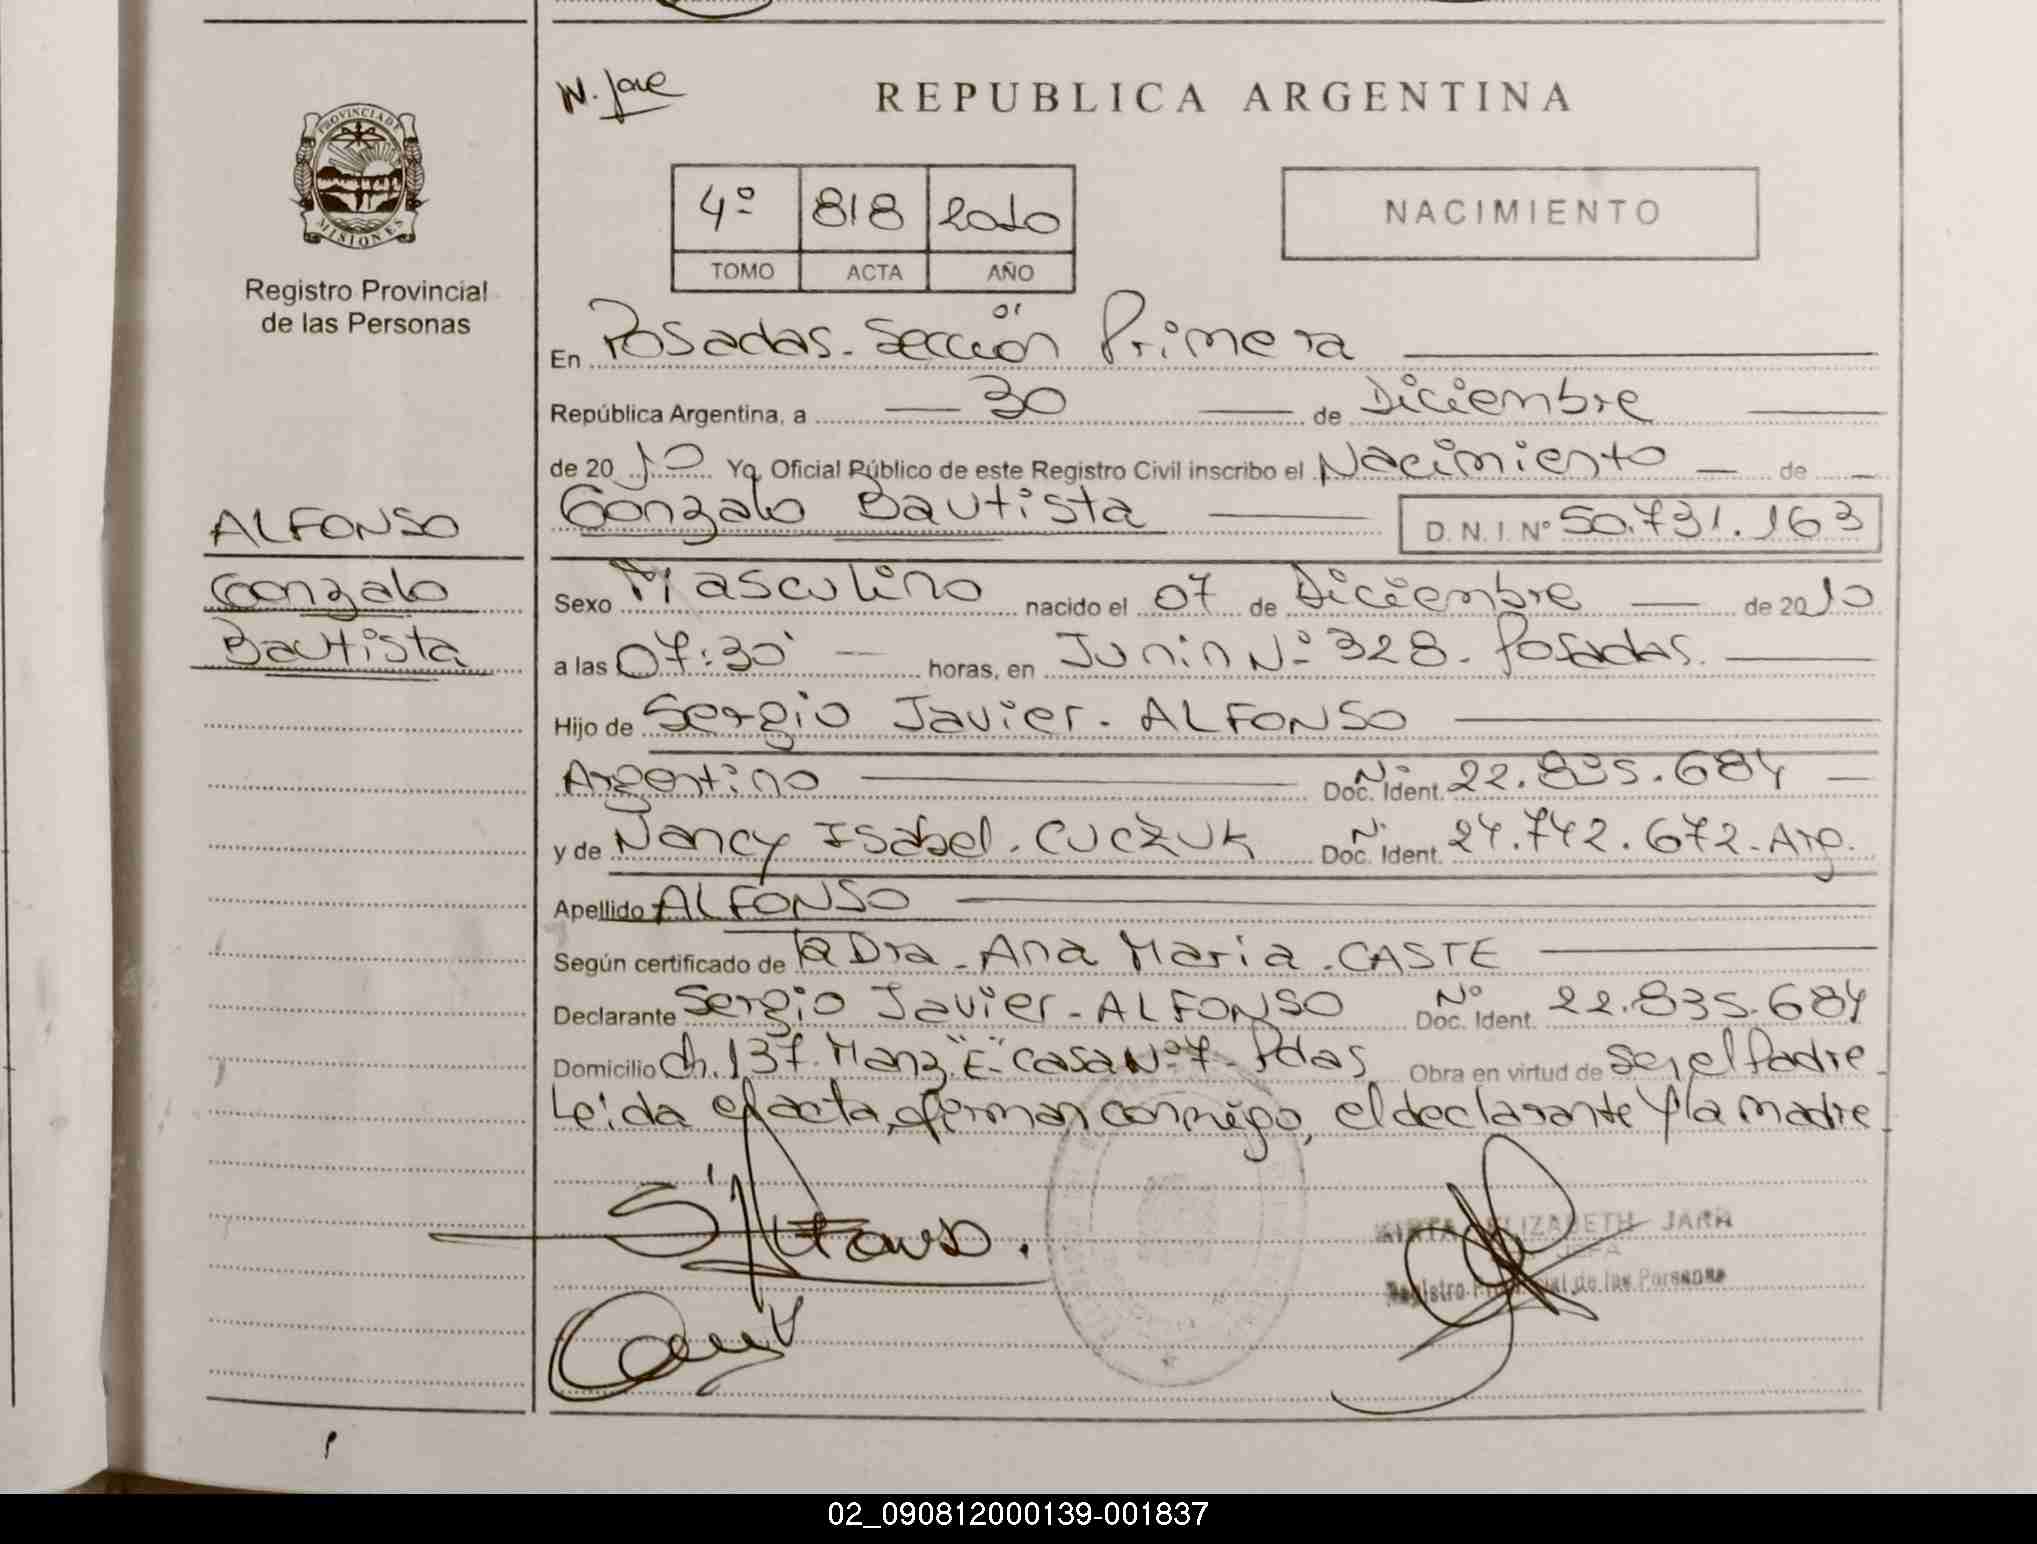 REPUBLICA ARGENTINA
PROVINCIA DE
MISIONES
Registro Provincial
de las Personas
4º 818 2010
TOMO ACTA AÑO
NACIMIENTO
En Posadas. Sección Primera
República Argentina, a 30 de Diciembre
de 2010 Yo Oficial Público de este Registro Civil inscribo el Nacimiento de
Gonzalo Bautista D.N.I. Nº 50.731.163
ALFONSO
Gonzalo
Bautista
Sexo Masculino nacido el 07 de Diciembre de 2010
a las 07:30' horas, en Junin Nº 328. Posadas.
Hijo de Sergio Javier. ALFONSO
Argentino Doc. Ident. Nº 22.835.684
y de Nancy Isabel. CUCZUK Doc. Ident. Nº 24.742.672. Arg.
Apellido ALFONSO
Según certificado de la Dra. Ana Maria. CASTE
Declarante Sergio Javier. ALFONSO Doc. Ident. Nº 22.835.684
Domicilio Ch. 137. Manz. "E" Casa Nº 7. Pdas Obra en virtud de ser el Padre.
Leida el acta, firman conmigo, el declarante y la madre.
S. Alfonso.
ELIZABETH JARA
JEFA
Registro Provincial de las Personas
02_090812000139-001837